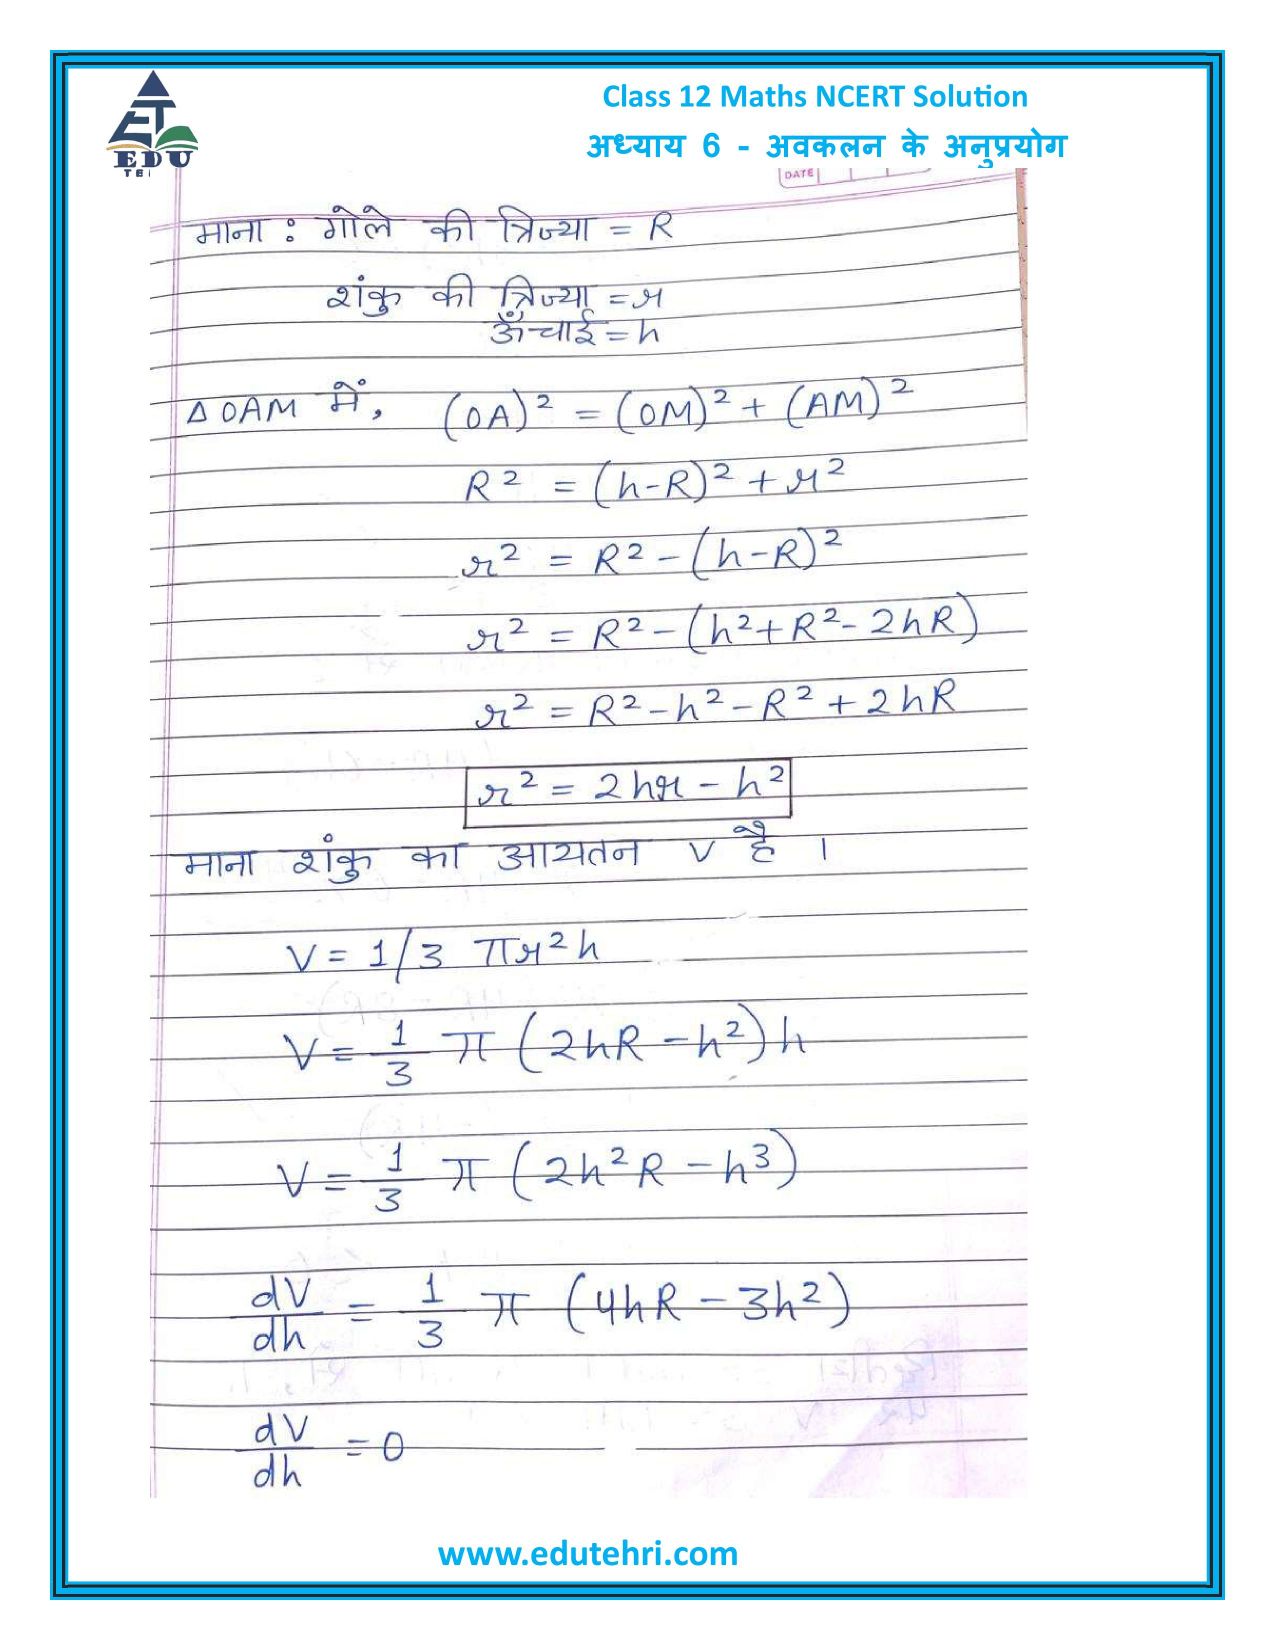 Class 12 Maths NCERT Solution
अध्याय 6 - अवकलन के अनुप्रयोग
EDU
DATE
माना : गोले की त्रिज्या = R
शंकु की त्रिज्या = r
ऊँचाई = h
Δ OAM में, (OA)² = (OM)² + (AM)²
R² = (h-R)² + r²
r² = R² - (h-R)²
r² = R² - (h²+R²-2hR)
r² = R² - h² - R² + 2hR
r² = 2hr - h²
माना शंकु का आयतन V है ।
V = 1/3 πr²h
V = 1/3 π (2hR - h²)h
V = 1/3 π (2h²R - h³)
dV/dh = 1/3 π (4hR - 3h²)
dV/dh = 0
www.edutehri.com